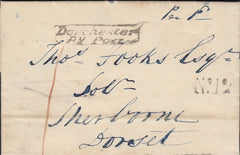 Dorchester
Py Post
Thos. Fooks Esqr.
Solr.
No. 12
Sherborne
Dorset